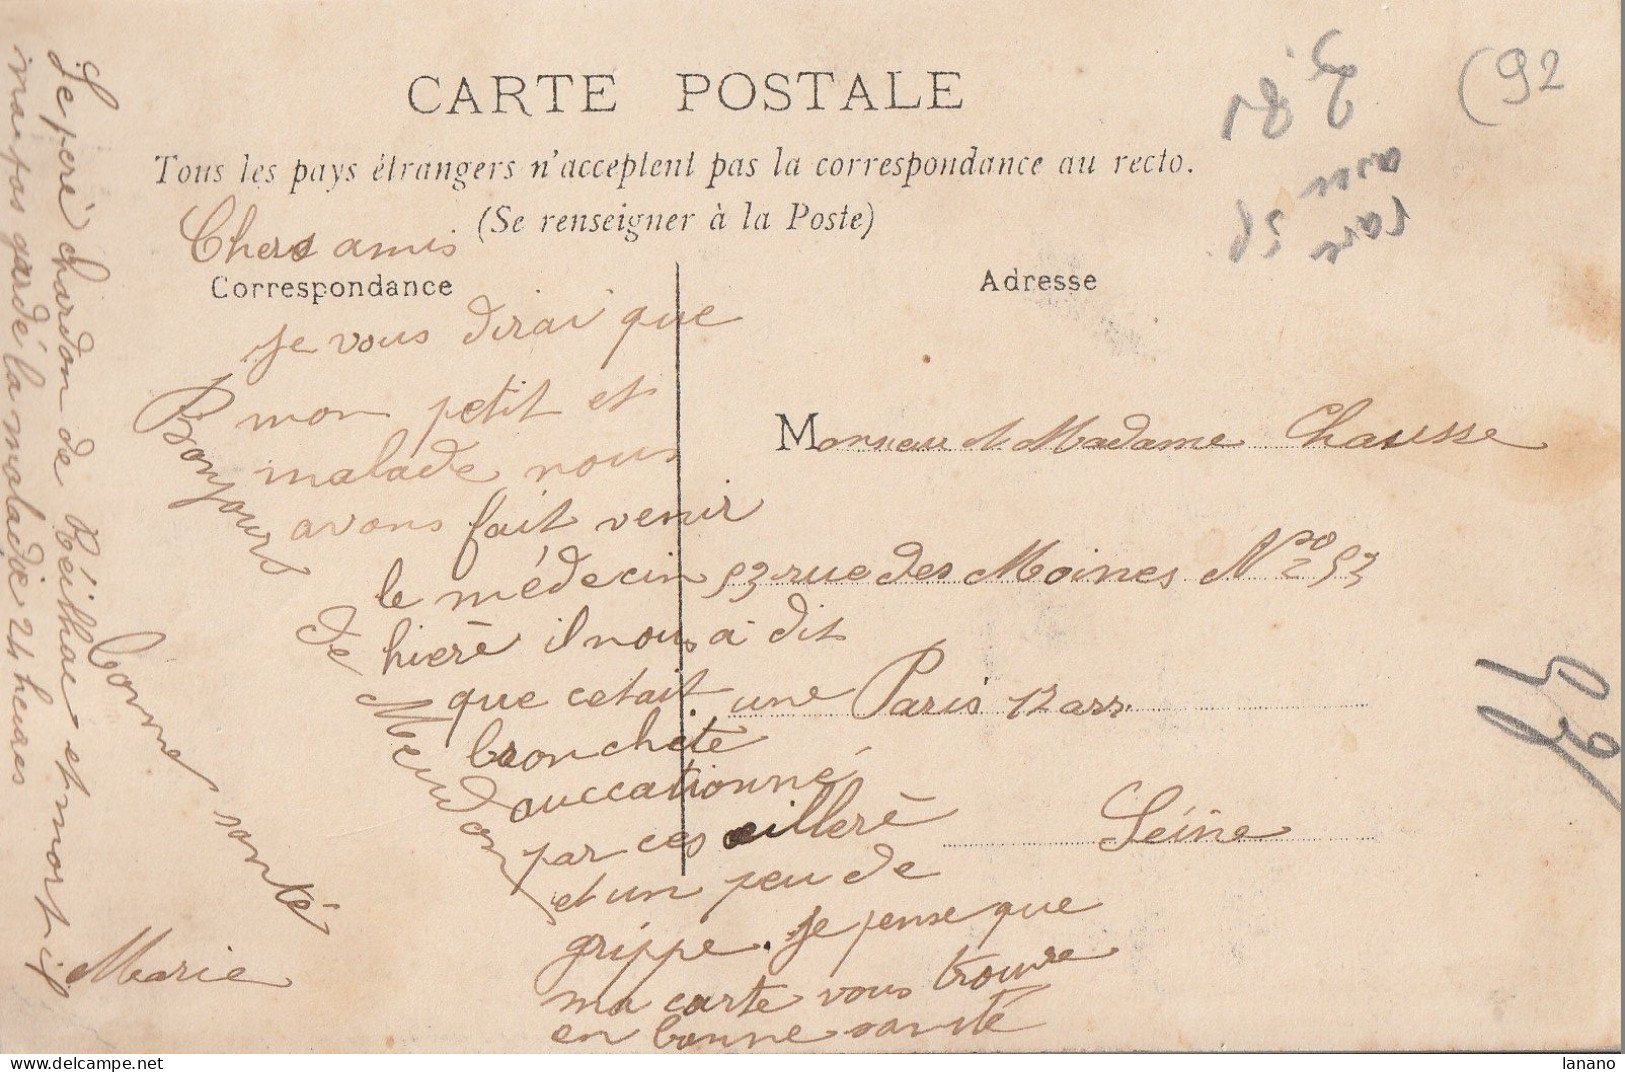 CARTE POSTALE
Tous les pays étrangers n'acceptent pas la correspondance au recto.
(Se renseigner à la Poste)
Correspondance
Adresse
(92
Chers amis
je vous dirai que
mon petit et
malade nous
avons fait venir
le médecin
hierè il nous a dit
que cetait une
bronchite
auccationné
par ces eillerè
et un peu de
grippe. je pense que
ma carte vous trouvre
en bonne santé
Bonjours
de Meudon
bonne santé
Marie
Le peré chardon de Réithae et mort il
mae pas gardé la maladie 24 heures
Monsieur et Madame Chausse
53 rue des Moines No 53
Paris 17 arr.
Seine